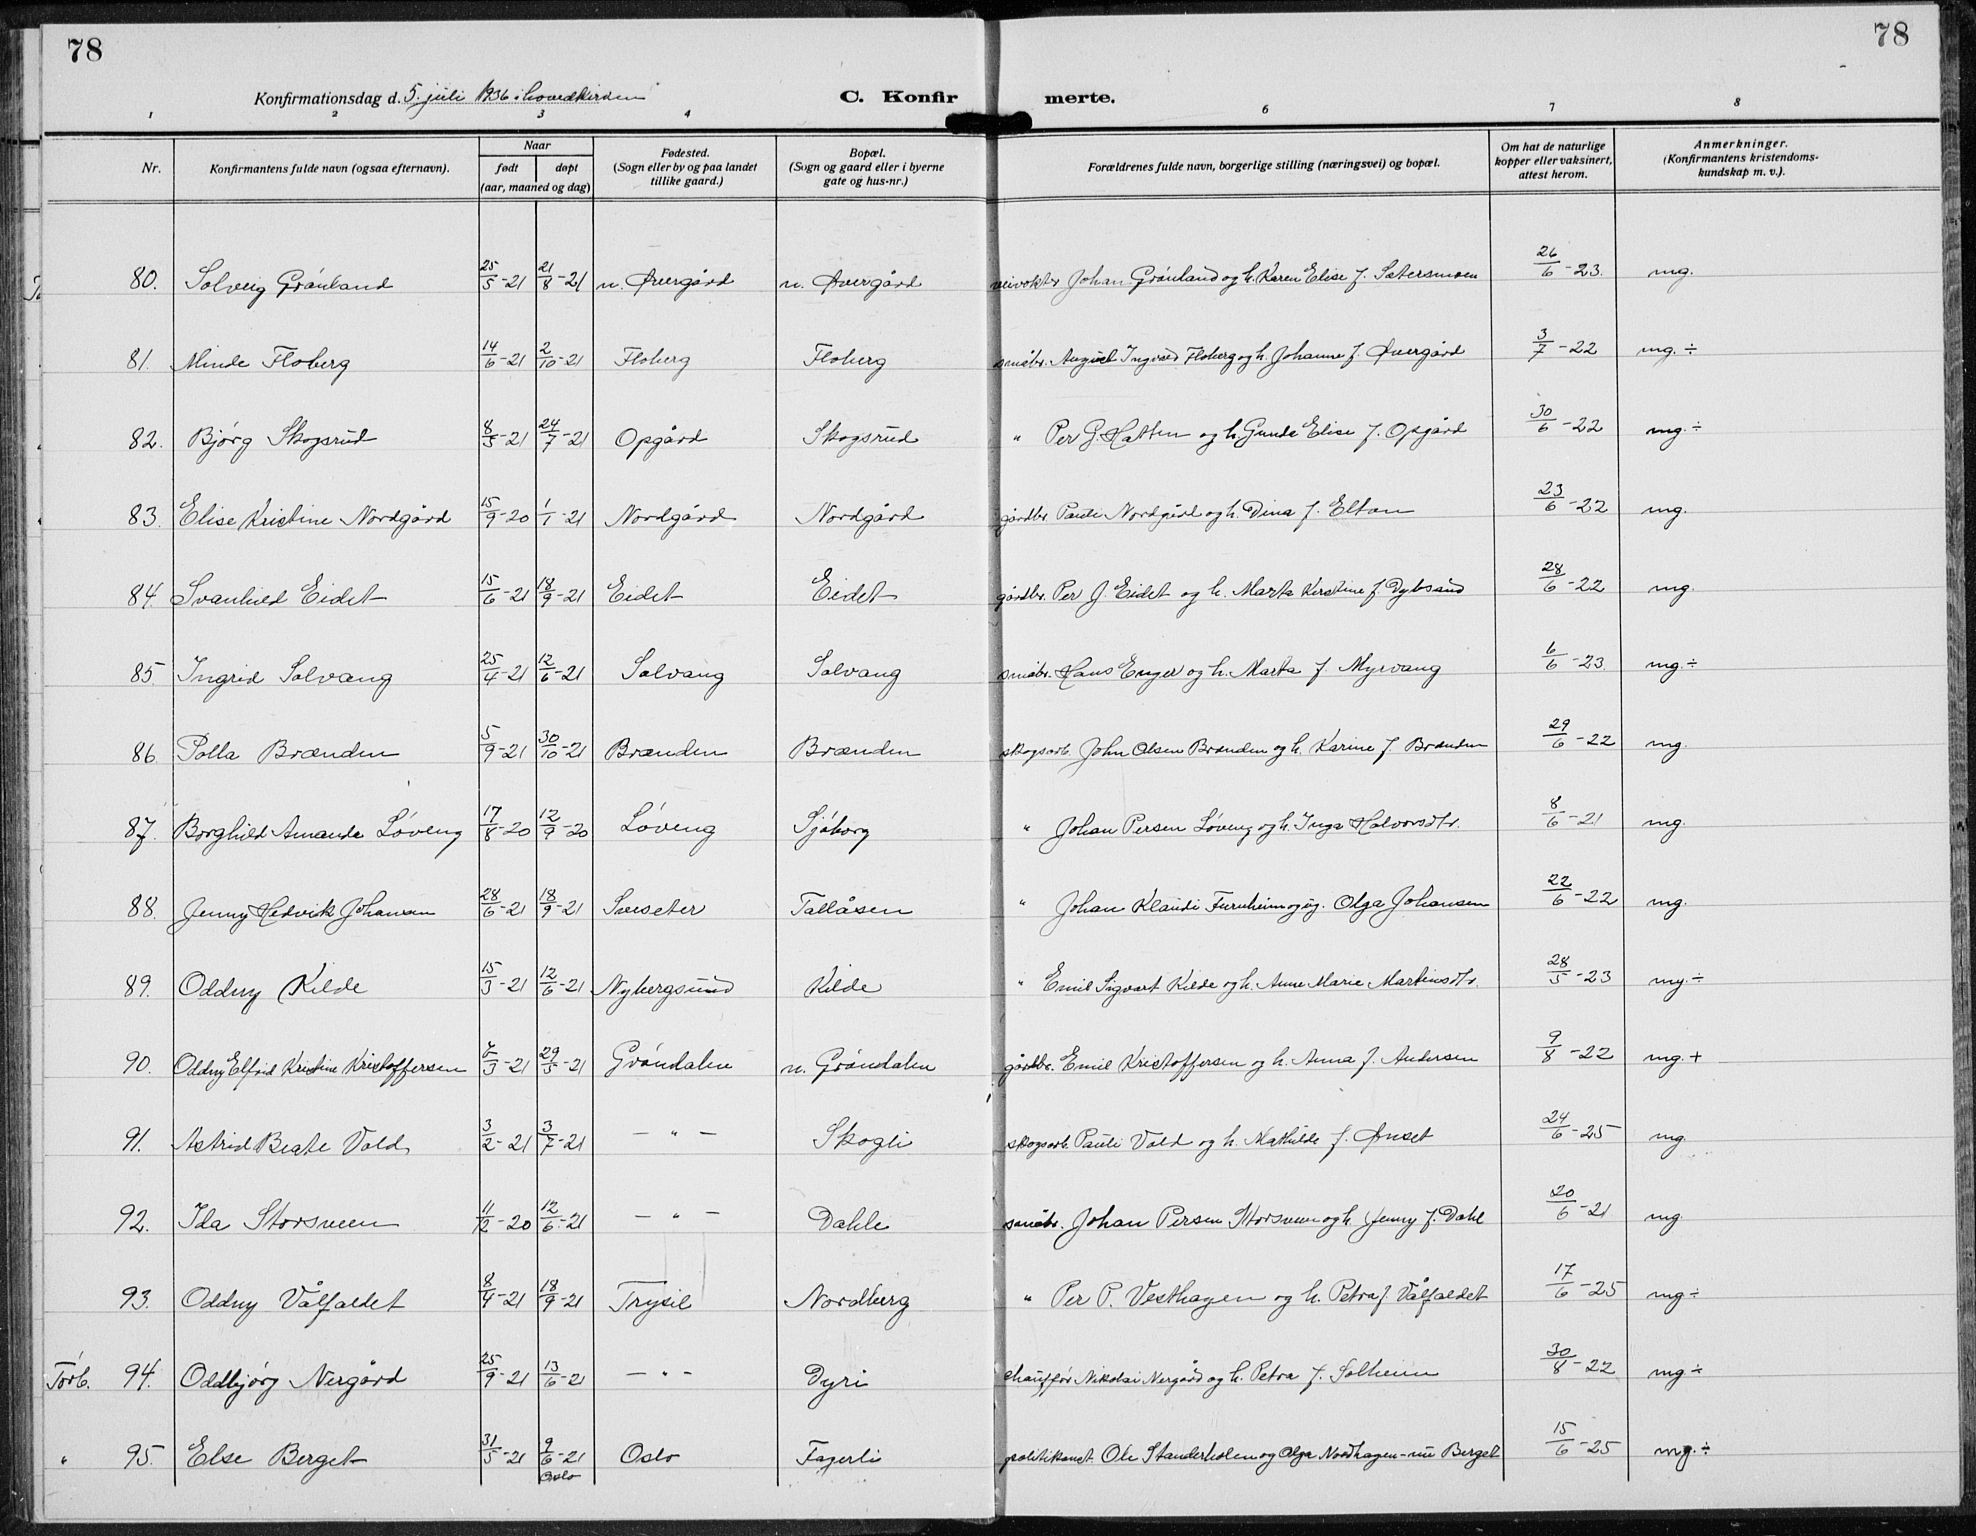 78
78
Konfirmationsdag d. 5. juli 1936 i hovedkirken
C. Konfir merte.
1 2 3 4 6 7 8
Nr.
Konfirmantens fulde navn (ogsaa efternavn).
Naar
født døpt
(aar, maaned og dag)
Fødested.
(Sogn eller by og paa landet
tillike gaard.)
Bopæl.
(Sogn og gaard eller i byerne
gate og hus-nr.)
Forældrenes fulde navn, borgerlige stilling (næringsvei) og bopæl.
Om hat de naturlige
kopper eller vaksinert,
attest herom.
Anmerkninger.
(Konfirmantens kristendoms-
kundskap m. v.).
80. Solveig Grønland 25/5-21 21/8-21 n. Øvergård n. Øvergård veivokter Johan Grønland og h. Karen Elise f. Sætersmoen 26/6-23 mg.
81. Minde Floberg 14/6-21 2/10-21 Floberg Floberg småbr. August Ingvald Floberg og h. Johanne f. Øvergård 3/7-22 mg. ÷
82. Bjørg Skogsrud 8/5-21 24/7-21 Opgård Skogsrud " Per G. Hatten og h. Gunda Elise f. Opgård 30/6-22 mg. ÷
83. Elise Kristine Nordgård 15/9-20 1/1-21 Nordgård Nordgård gårdbr. Pauli Nordgård og h. Dina f. Eltun 23/6-22 mg.
84. Svanhild Eidet 15/6-21 18/9-21 Eidet Eidet gårdbr. Per J. Eidet og h. Marta Kirstine f. Dybsand 28/6-22 mg.
85 Ingrid Solvang 25/4-21 12/6-21 Solvang Solvang småbr. Hans Enger og h. Marta f. Myrvang 6/6-23 mg. ÷
86 Polla Brænden 5/9-21 30/10-21 Brænden Brænden skogsarb. John Olsen Brænden og h. Karine f. Brænden 29/6-22 mg.
87. Borghild Amanda Løveng 17/8-20 12/9-20 Løveng Sjøborg " Johan Persen Løveng og h. Inga Halvorsdtr. 8/6-21 mg.
88. Jenny Hedvik Johansen 28/6-21 18/9-21 Sæseter Tallåsen " Johan Klaudi Furuheim og ug. Olga Johansen 22/6-22 mg.
89. Oddny Kilde 15/3-21 12/6-21 Nybergsund Kilde " Emil Sigvart Kilde og h. Anne Marie Martinsdtr. 28/5-23 mg. ÷
90. Oddny Elfrid Kristine Kristoffersen 6/3-21 29/5-21 Grøndalen n. Grøndalen gårdbr. Emil Kristoffersen og h. Anna f. Andersen 9/8-22 mg. +
91. Astrid Beate Vold 3/2-21 3/7-21 — " — Skogli skogsarb. Pauli Vold og h. Mathilde f. Ønset 24/6-25 mg.
92. Ida Storsveen 11/12-20 12/6-21 — " — Dahle småbr. Johan Persen Storsveen og h. Jenny f. Dahl 20/6-21 mg.
93. Oddny Vålfaldet 8/4-21 18/9-21 Trysil Nordberg " Per P. Vesthagen og h. Petra f. Vålfaldet 17/6-25 mg ÷
Tørb. 94. Oddbjørg Nergård 25/9-21 13/6-21 — " — Dyri chauffør Nikolai Nergård og h. Petra f. Solheim 30/8-22 mg ÷
" 95. Else Berget 31/5-21 9/6-21 Oslo Oslo Fagerli politikonst. Ole Standerholen og Olga Nordhagen - nu Berget 15/6-25 mg. ÷